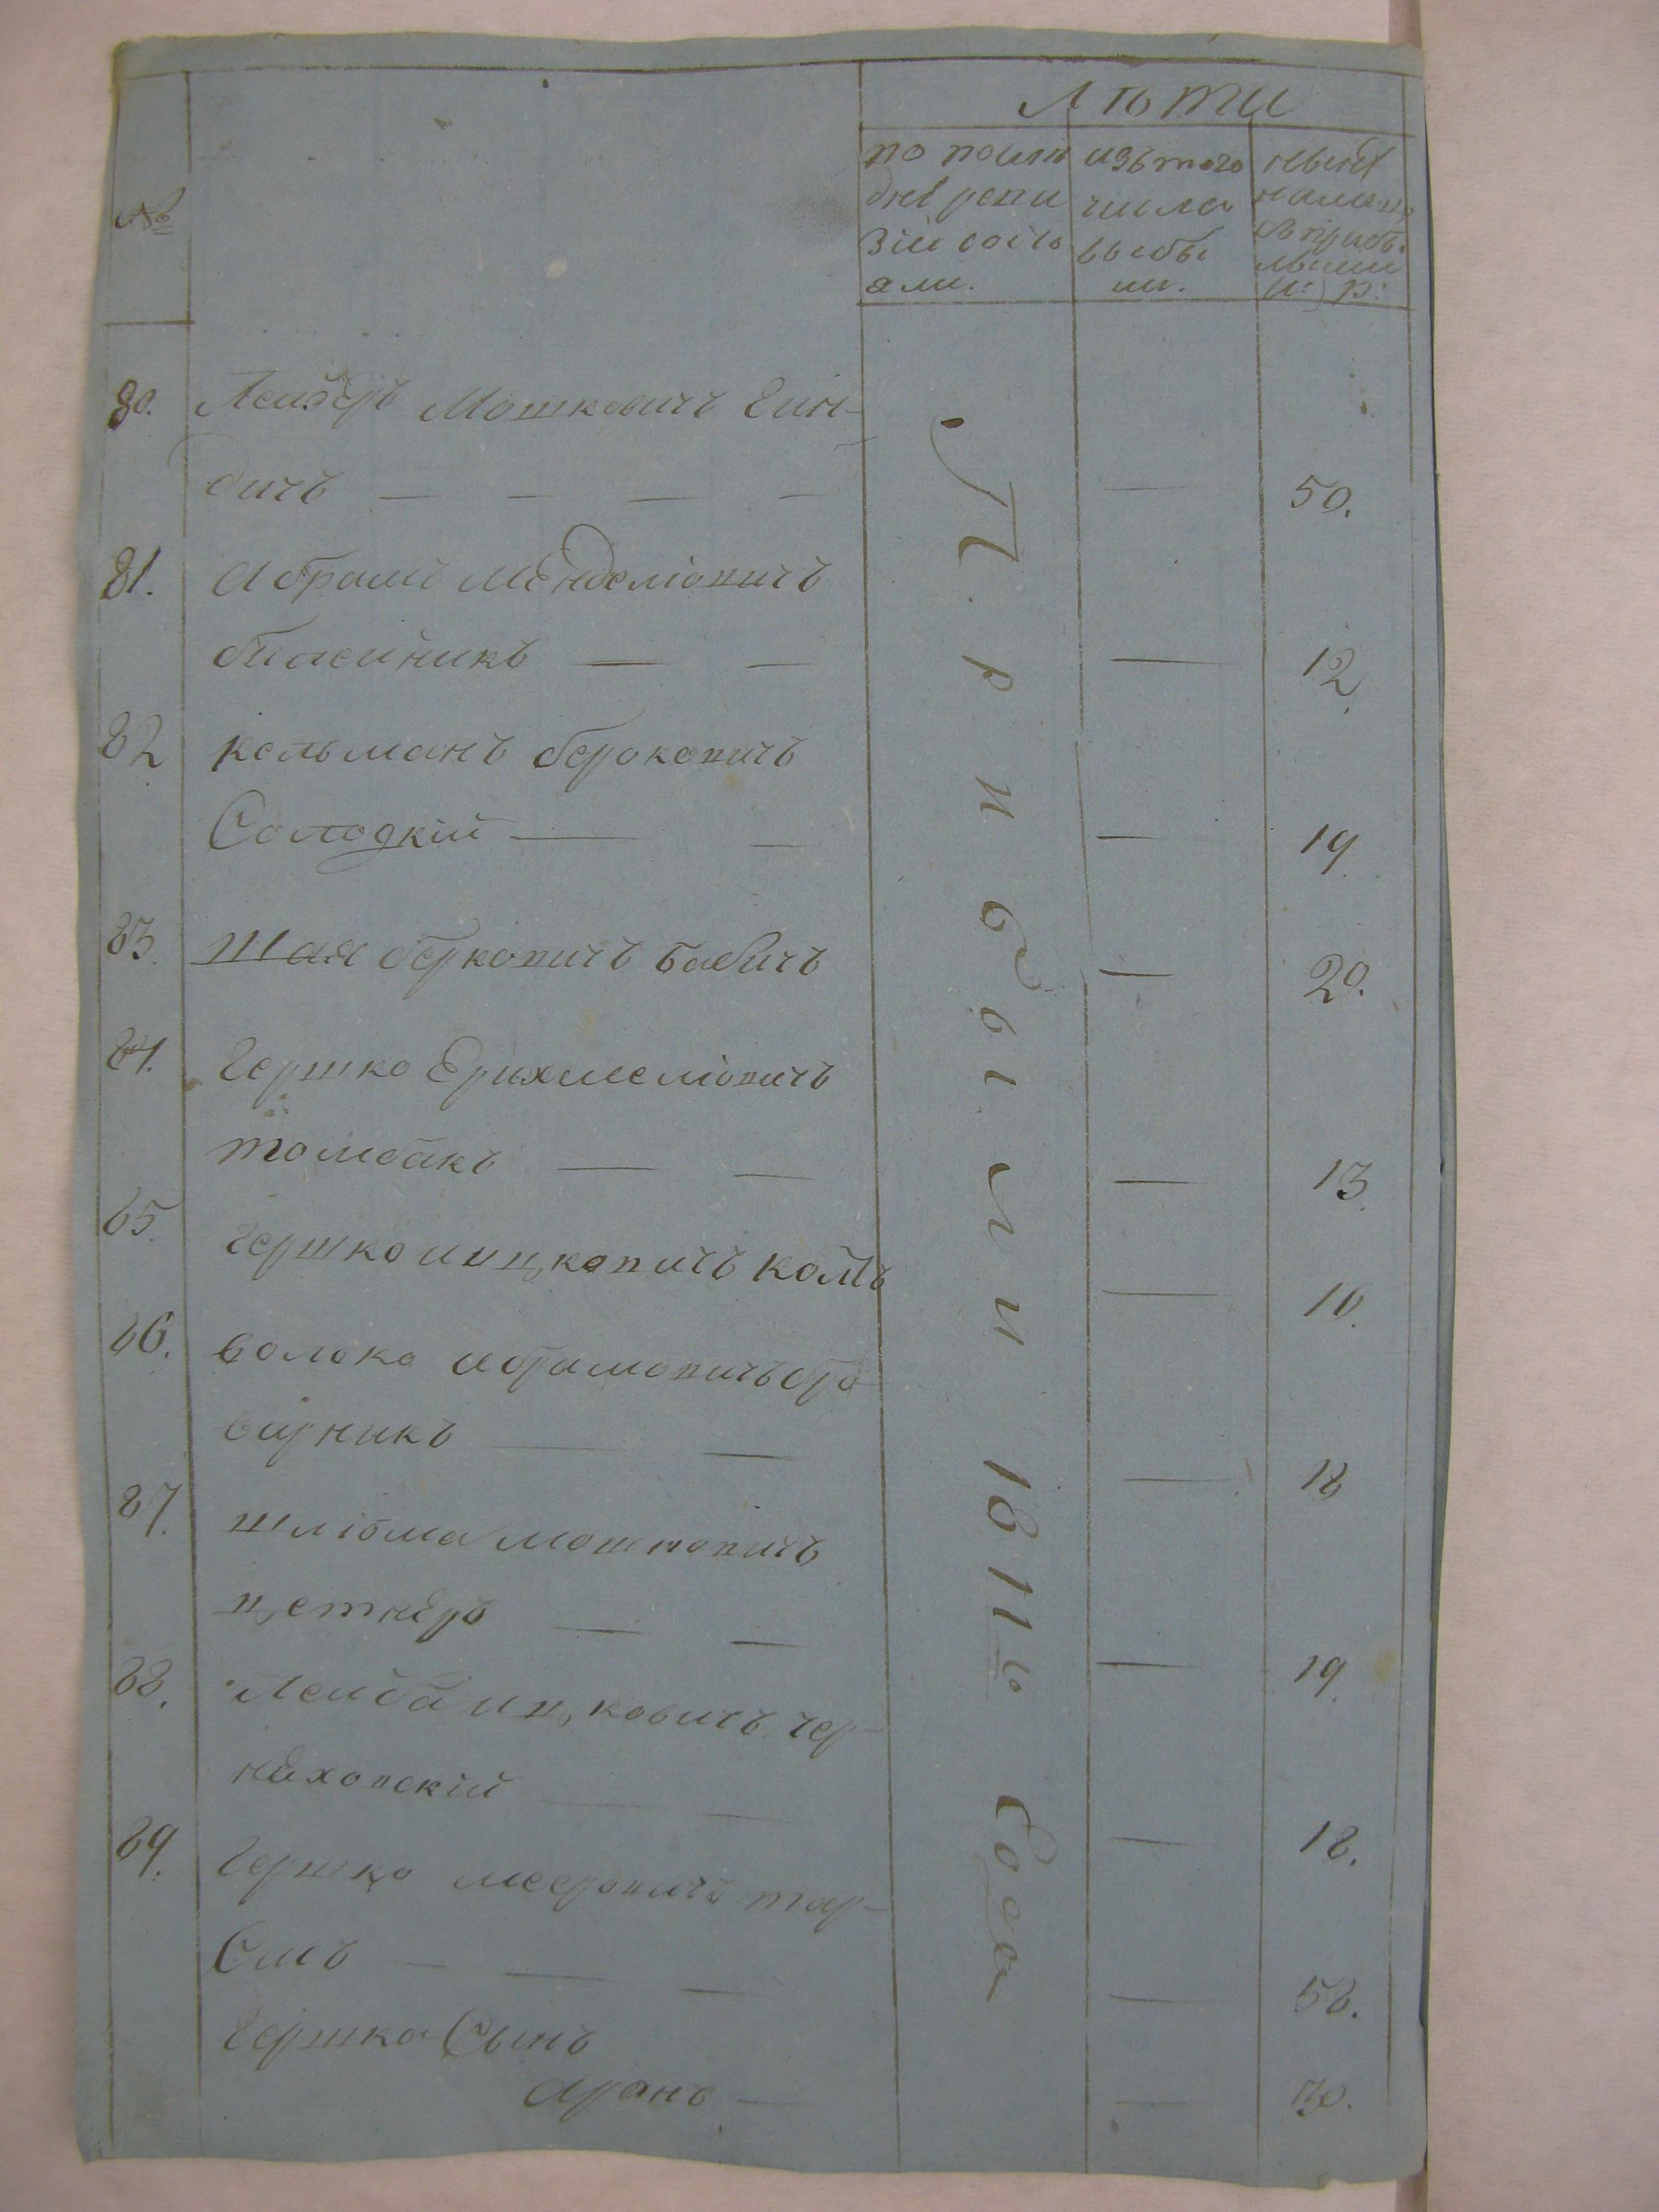 Лѣта
№
по послѣ
дней реви
зіи состо
яли.
изъ того
числа
выбы
ли.
нынѣ
налицо
Прибы
лыми
80. Лейзеръ Мошковичъ Гин-
дичъ — — — — — 50.
81. Абрамъ Менделіовичъ
билейникъ — — — 12.
82 Кельманъ берковичъ
Солодкій — — — 19.
83. Шая берковичъ бабичъ — 20.
84. Гершко Ерихмеліовичъ
томбакъ — — — 13.
85. Гершко ицковичъ котъ — 16.
86. волько абрамовичъ бро
варникъ — — — 18
87. шліома мошковичъ
цетнеръ — — — 19.
88. Лейба ицковичъ чер-
няховскій — — — 18.
89. Гершко мееровичъ тар-
Сисъ — — — — 58.
Гершка Сынъ
аронъ — — 30.
Прибыли 1811го Года